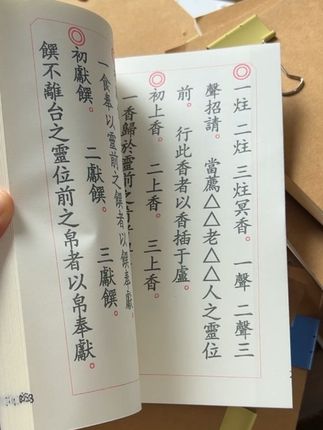 ◎一炷 二炷 三炷冥香。 一聲 二聲 三
聲招請。 當薦△△老△△人之靈位
前。 行此香者以香插于盧。
◎初上香。 二上香。 三上香。
一香歸於靈前之
一食奉以靈前之饌者以饌奉獻。
◎初獻饌。 二獻饌。 三獻饌。
饌不離台之靈位前之帛者以帛奉獻。